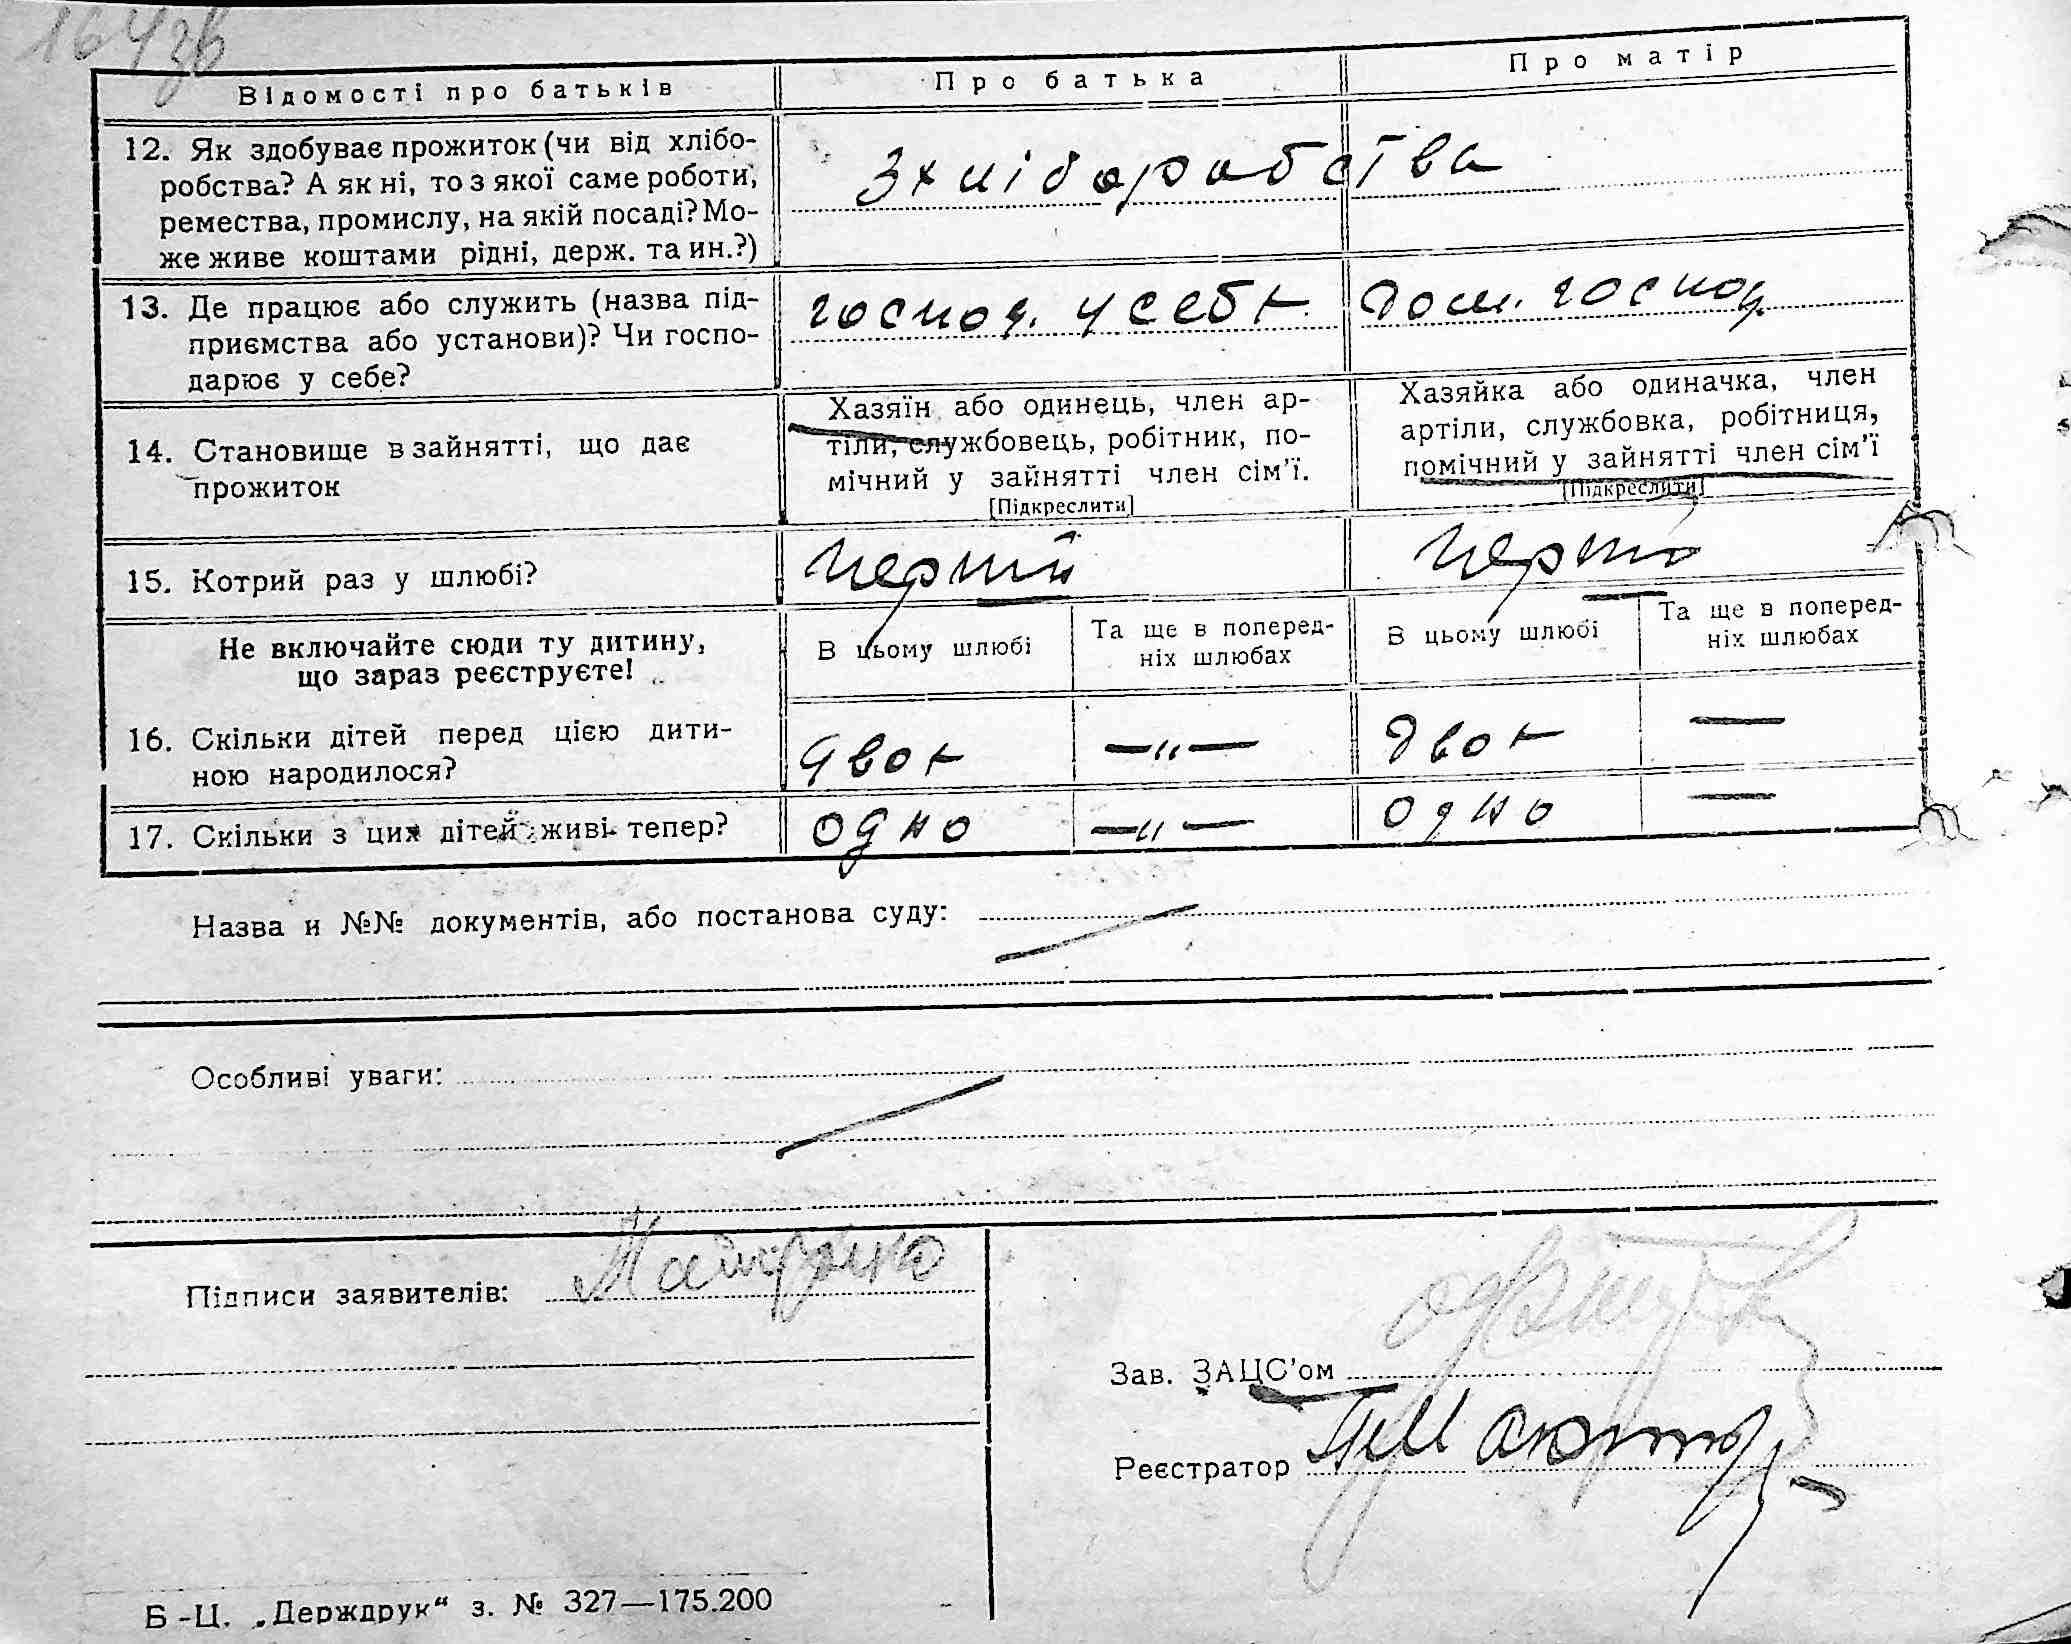 164зв
Відомості про батьків
Про батька
Про матір
12. Як здобуває прожиток (чи від хлібо-
робства? А як ні, то з якої саме роботи,
ремества, промислу, на якій посаді? Мо-
же живе коштами рідні, держ. та ин.?)
З хліборобства
13. Де працює або служить (назва під-
приємства або установи)? Чи госпо-
дарює у себе?
господ. у себе
Дом. господ.
14. Становище в зайнятті, що дає
прожиток
Хазяїн або одинець, член ар-
тіли, службовець, робітник, по-
мічний у зайнятті член сім'ї.
[Підкреслити]
Хазяйка або одиначка, член
артіли, службовка, робітниця,
помічний у зайнятті член сім'ї
[Підкреслити]
15. Котрий раз у шлюбі?
Перший
Перш
Не включайте сюди ту дитину,
що зараз реєструєте!
В цьому шлюбі
Та ще в поперед-
ніх шлюбах
В цьому шлюбі
Та ще в поперед-
ніх шлюбах
16. Скільки дітей перед цією дити-
ною народилося?
двое
—"—
двое
—
17. Скільки з цих дітей живі тепер?
одно
—"—
одно
—
Назва и №№ документів, або постанова суду:
Особливі уваги:
Підписи заявителів:
Зав. ЗАЦС'ом
Реєстратор
Б-Ц. „Держдрук“ з. № 327—175.200